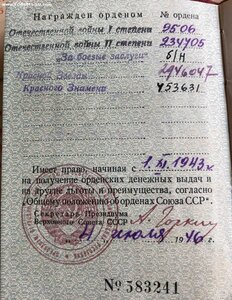 Награжден орденом № ордена
Отечественной войны I степени 9506
Отечественной войны II степени 234705
"За боевые заслуги" б/н
Красной Звезды 2946047
Красного Знамени 453631
Имеет право, начиная с 1. XI 1943 г.
на получение орденских денежных выдач и
на другие льготы и преимущества, согласно
„Общему положению об орденах Союза ССР".
Секретарь Президиума
Верховного Совета СССР А. Горкин
4 июля 1946 г.
№ 583241